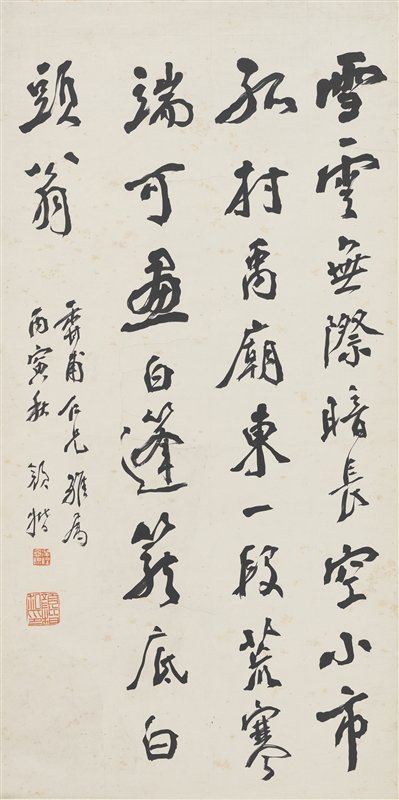 雪雲無際暗長空小市
孤村禹廟東一段荒寒
端可畫白篷籠底白
頭翁
甫仁兄雅屬
丙寅秋 顏楷